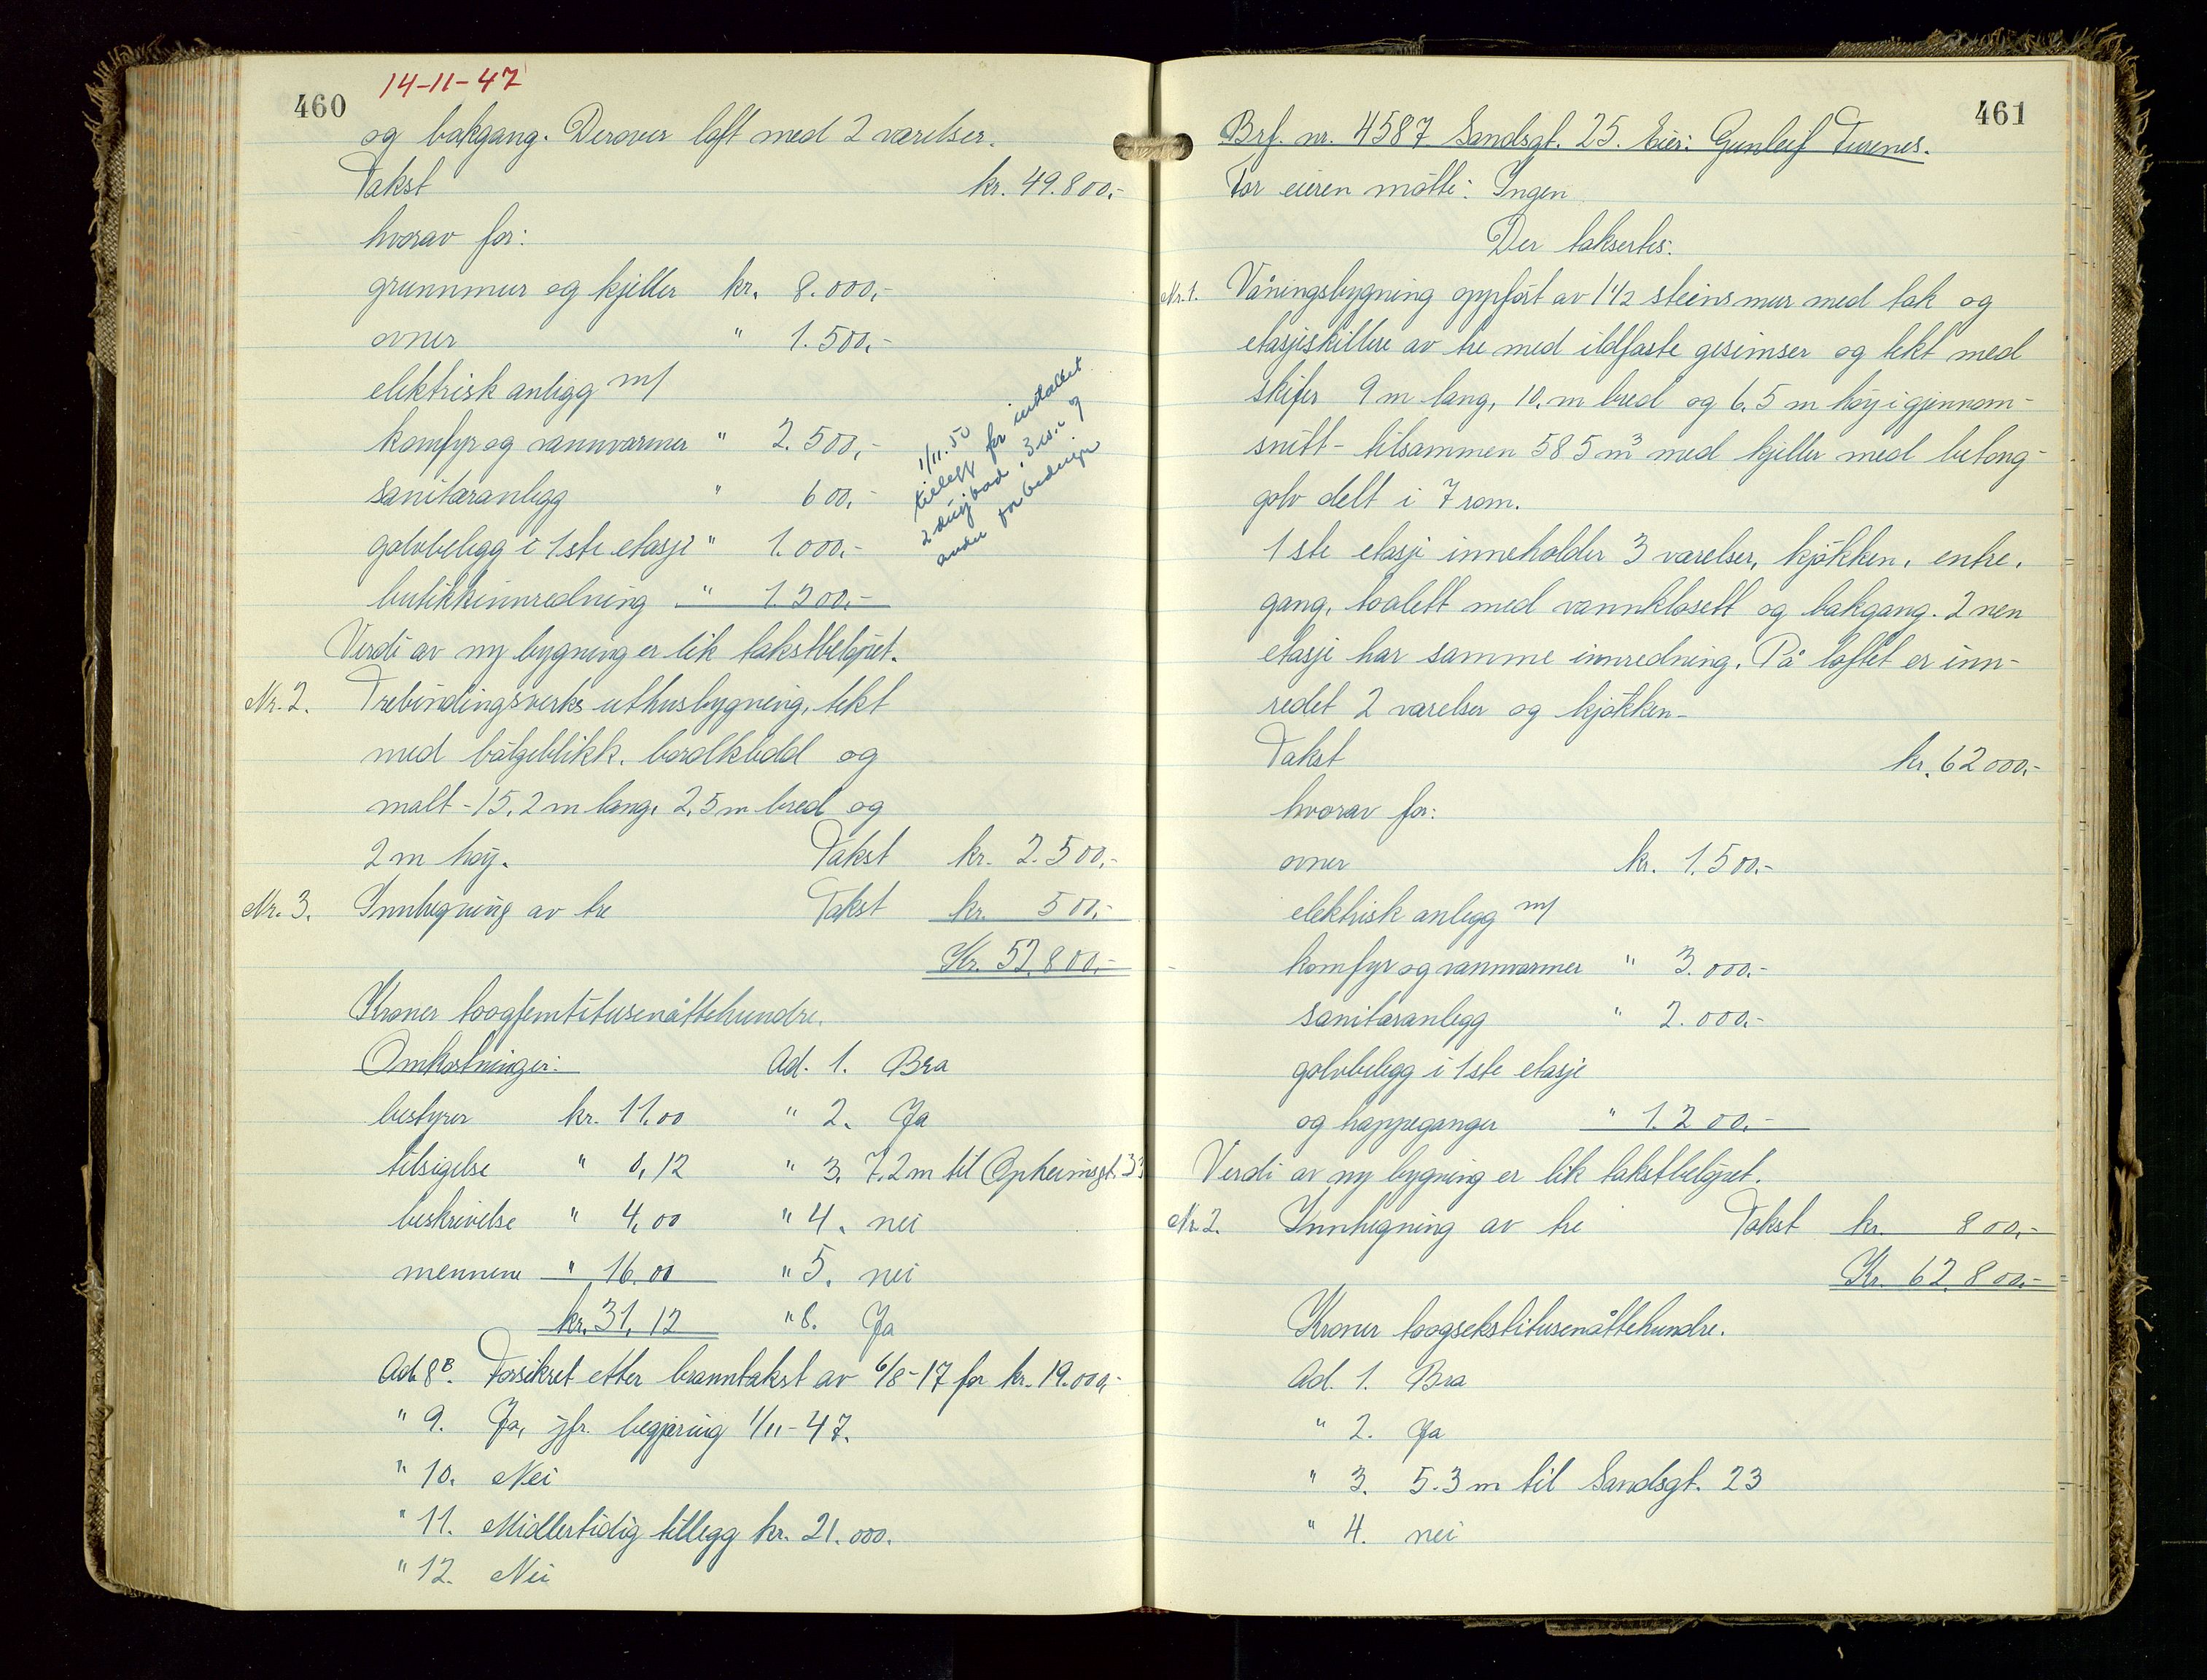 460
14-11-47
og bakgang. Derover loft med 2 værelser.
Takst kr. 49.800,-
hvorav for:
grunnmur og kjeller kr. 8.000,-
ovner " 1.500,-
elektrisk anlegg m/
komfyr og vannvarmer " 2.500,-
sanitæranlegg " 600,-
golvbelegg i 1ste etasje " 1.000,-
butikkinnredning " 1.200,-
1/11.50
tillegg for installert
2 dusjbad, 3 w.c og
andre forbedringer
Verdi av ny bygning er lik takstbeløpet.
Nr. 2. Trebindingsverks uthusbygning, tekt
med bølgeblikk, bordkledd og
malt - 15,2 m lang, 2,5 m bred og
2 m høy. Takst kr. 2.500,-
Nr. 3. Innhegning av tre Takst kr. 500,-
Kr. 52.800,-
Kroner toogfemtitusenåttehundre.
Omkostninger: Ad. 1. Bra
bestyrer kr. 11,00 " 2. Ja
tilsigelse " 0,12 " 3. 7.2 m til Opheimsgt. 33
beskrivelse " 4,00 " 4. nei
mennene " 16.00 " 5. nei
kr. 31,12 " 8. Ja
Ad. 8B. Forsikret etter branntakst av 6/8-17 for kr. 19.000,-
" 9. Ja, jfr. begjæring 1/11-47.
" 10. Nei
" 11. Midlertidig tillegg kr. 21.000.
" 12. Nei
461
Brf. nr. 4587 Sandsgt. 25. Eier: Gunleif Turenes.
For eieren møtte: Ingen
Der taksertes:
Nr. 1. Våningsbygning oppført av 1 1/2 steins mur med tak og
etasjeskillere av tre med ildfaste gesimser og tekt med
skifer 9 m lang, 10, m bred og 6,5 m høy i gjennom-
snitt - tilsammen 585 m3 med kjeller med betong-
golv delt i 7 rom.
1ste etasje inneholder 3 værelser, kjøkken, entre,
gang, toalett med vannklosett og bakgang. 2nen
etasje har samme innredning. På loftet er inn-
redet 2 værelser og kjøkken-
Takst kr. 62000,-
hvorav for:
ovner kr. 1.500,-
elektrisk anlegg m/
komfyr og vannvarmer " 3.000,-
sanitæranlegg " 2.000,-
golvbelegg i 1ste etasje
og trappeganger " 1.200,-
Verdi av ny bygning er lik takstbeløpet.
Nr. 2. Innhegning av tre Takst kr. 800,-
Kr. 62.800,-
Kroner toogsekstitusenåttehundre.
Ad. 1. Bra
" 2. Ja
" 3. 5.3 m til Sandsgt. 23
" 4. nei